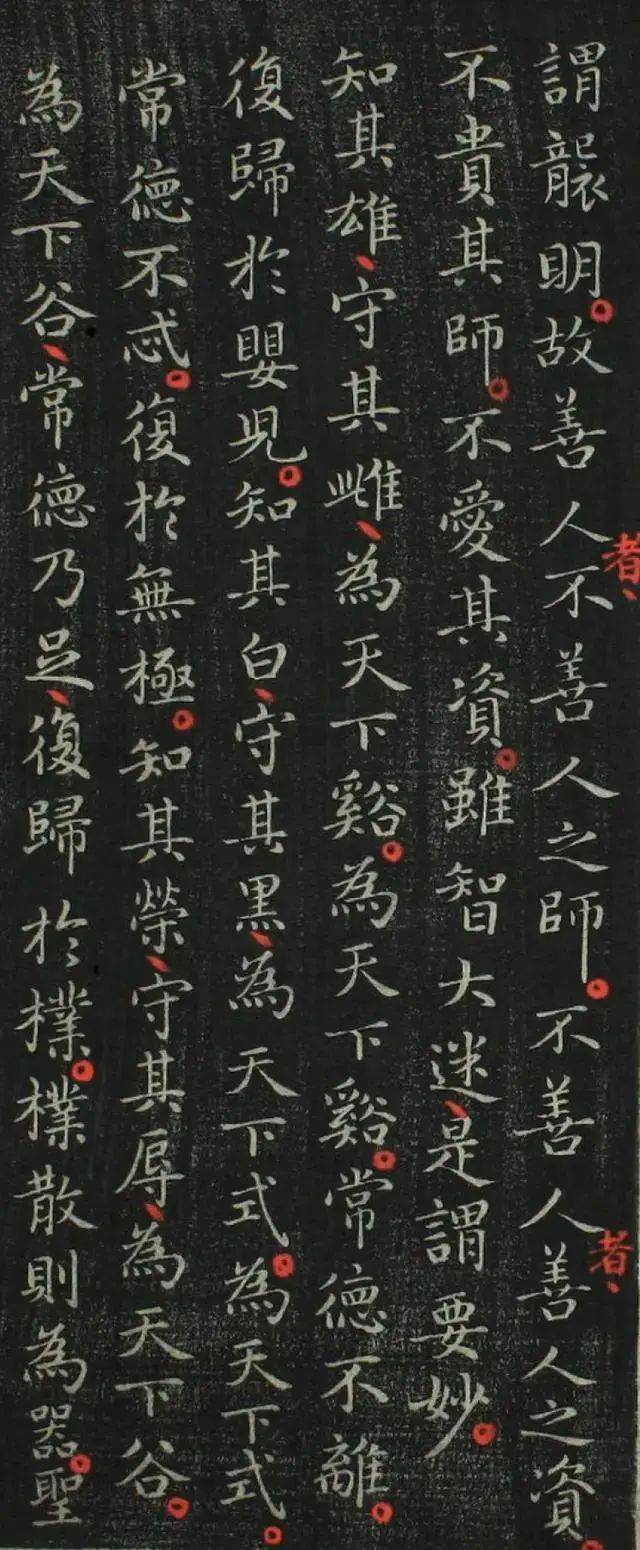 謂襲明。故善人者、不善人之師。不善人者、善人之資。
不貴其師。不愛其資。雖智大迷、是謂要妙。
知其雄、守其雌、為天下谿。為天下谿。常德不離。
復歸於嬰児。知其白、守其黒、為天下式。為天下式。
常德不忒。復於無極。知其榮、守其辱、為天下谷。
為天下谷、常德乃足、復歸於樸。樸散則為器。聖